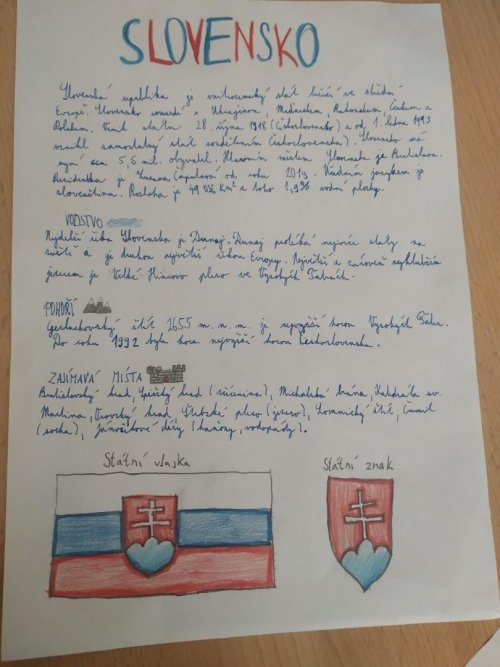 SLOVENSKO
Slovenská republika je vnitrozemský stát ležící ve střední
Evropě. Slovensko sousedí s Ukrajinou, Maďarskem, Rakouskem, Českem a
Polskem. Vznik státu 28. října 1918 (Československo) a od 1. ledna 1993
vznikl samostatný stát rozdělením Československa. Slovensko má
nyní cca 5,5 mil. obyvatel. Hlavním městem Slovenska je Bratislava.
Prezidentka je Zuzana Čaputová od roku 2019. Úředním jazykem je
slovenština. Rozloha je 49 036 km² a toho 1,9% vodní plochy.
VODSTVO
Nejdelší řeka Slovenska je Dunaj. Dunaj protéká nejvíce státy na
světě a je druhou největší řekou Evropy. Největší a zároveň nejhlubším
jezerem je Velké Hincovo pleso ve Vysokých Tatrách.
POHOŘÍ
Gerlachovský štít 2655 m. n. m. je nejvyšší horou Vysokých Tater.
Do roku 1992 byla hora nejvyšší horou Československa.
ZAJÍMAVÁ MÍSTA
Bratislavský hrad, Spišský hrad (zřícenina), Michalská brána, Katedrála sv.
Martina, Oravský hrad, Štrbské pleso (jezero), Lomnický štít, Čumil
(socha), Jánošíkove diery (kaňony, vodopády).
Státní vlajka
Státní znak